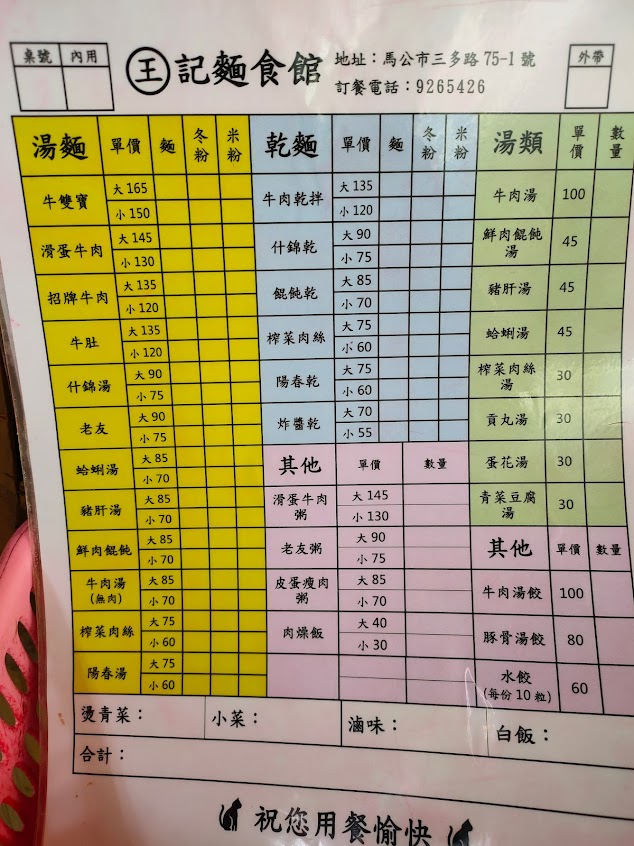 桌號 內用
王記麵食館
地址：馬公市三多路75-1號
訂餐電話：9265426
外帶
湯麵 單價 麵 冬粉 米粉
牛雙寶 大165 小150
滑蛋牛肉 大145 小130
招牌牛肉 大135 小120
牛肚 大135 小120
什錦湯 大90 小75
老友 大90 小75
蛤蜊湯 大85 小70
豬肝湯 大85 小70
鮮肉餛飩 大85 小70
牛肉湯(無肉) 大85 小70
榨菜肉絲 大75 小60
陽春湯 大75 小60
乾麵 單價 麵 冬粉 米粉
牛肉乾拌 大135 小120
什錦乾 大90 小75
餛飩乾 大85 小70
榨菜肉絲 大75 小60
陽春乾 大75 小60
炸醬乾 大70 小55
其他 單價 數量
滑蛋牛肉粥 大145 小130
老友粥 大90 小75
皮蛋瘦肉粥 大85 小70
肉燥飯 大40 小30
湯類 單價 數量
牛肉湯 100
鮮肉餛飩湯 45
豬肝湯 45
蛤蜊湯 45
榨菜肉絲湯 30
貢丸湯 30
蛋花湯 30
青菜豆腐湯 30
其他 單價 數量
牛肉湯餃 100
豚骨湯餃 80
水餃(每份10粒) 60
燙青菜： 小菜： 滷味： 白飯：
合計：
祝您用餐愉快